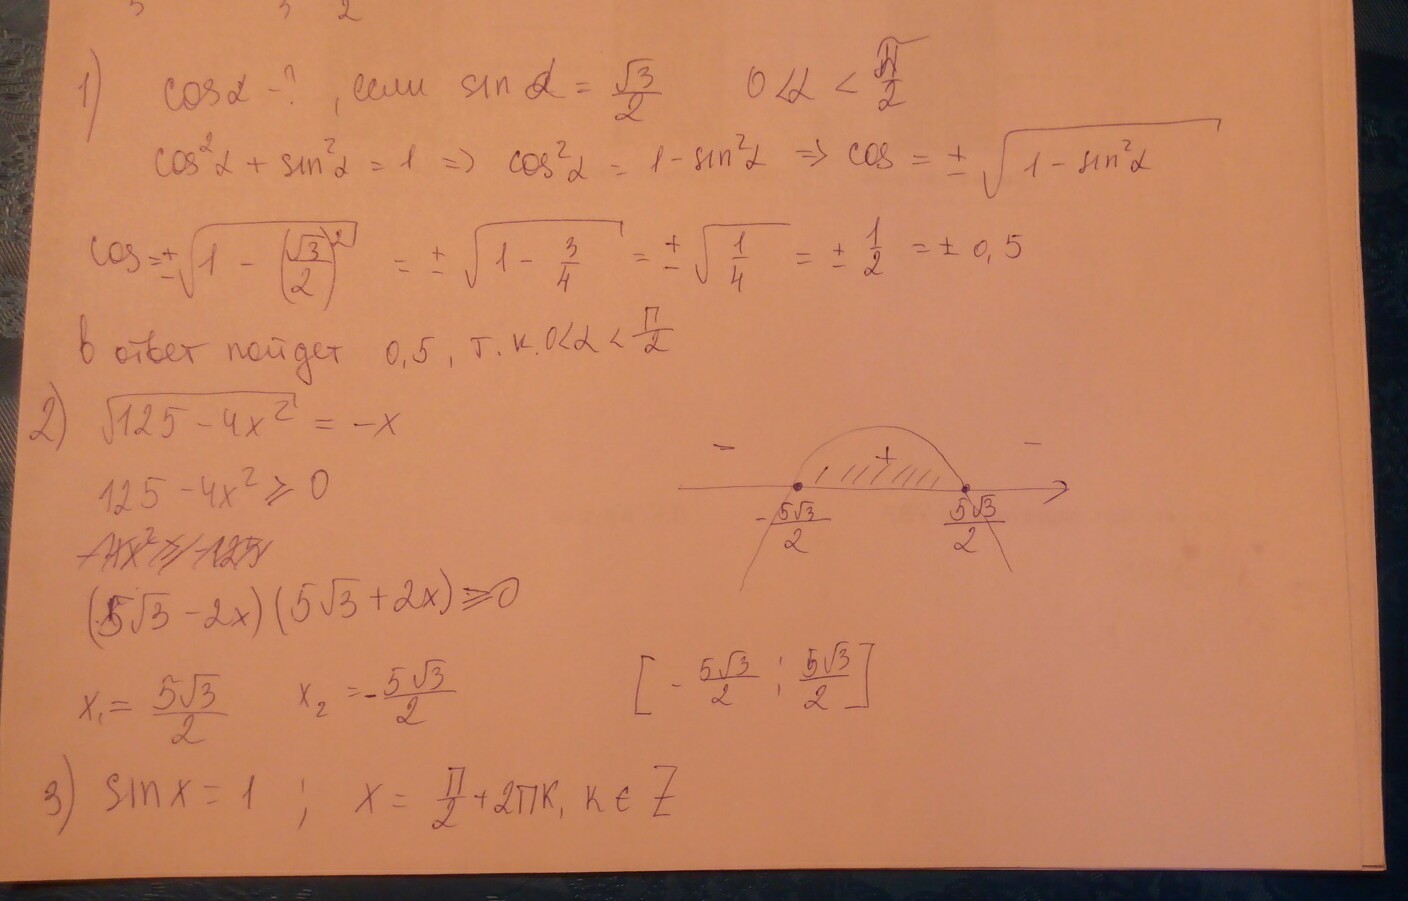 1) cosα - ? , если sin α = √3/2 0<α < π/2
cos²α + sin²α = 1 => cos²α = 1 - sin²α => cos = ± √(1 - sin²α)
cos = ±√(1 - (√3/2)²) = ± √(1 - 3/4) = ± √(1/4) = ± 1/2 = ± 0,5
в ответ пойдет 0,5, т.к. 0<α < π/2
2) √(125 - 4x²) = -x
125 - 4x² ≥ 0
-4x² ≥ -125
(5√3 - 2x)(5√3 + 2x) ≥ 0
- + -
-5√3/2 5√3/2
x₁ = 5√3/2 x₂ = -5√3/2 [-5√3/2 ; 5√3/2]
3) sin x = 1 ; x = π/2 + 2πк, к ∈ Z